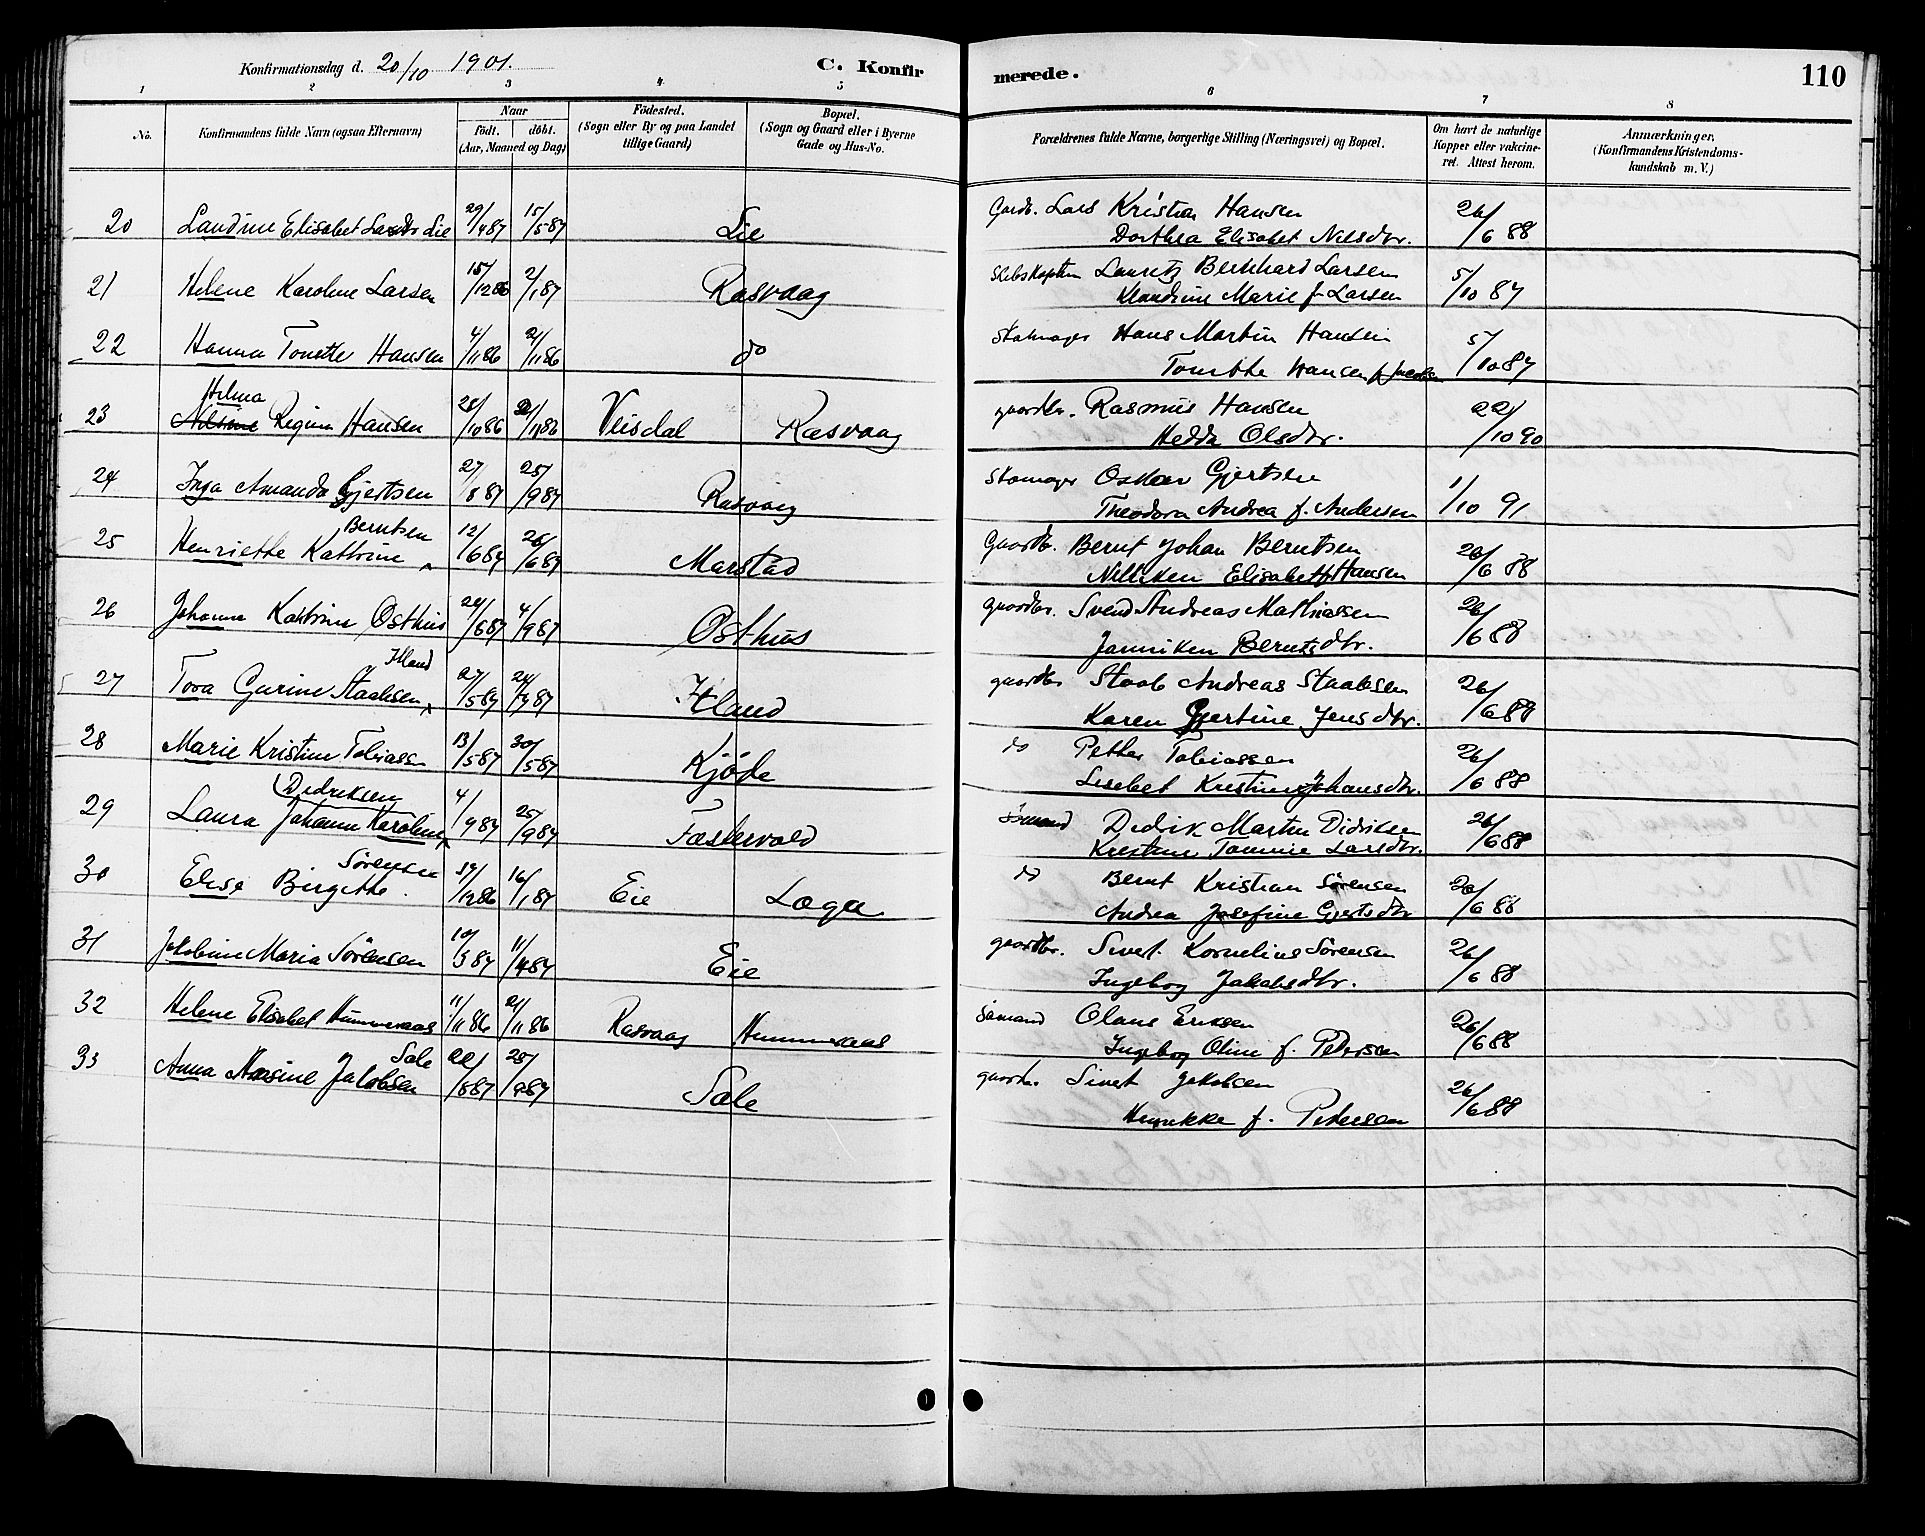 Konfirmationsdag d. 20/10 1901. C. Konfir
merede. 110
1 2 3 4 5 6 7 8
No. Konfirmandens fulde Navn (ogsaa Efternavn) Naar födt. döbt. (Aar, Maaned og Dag) Födested. (Sogn eller By og paa Landet tillige Gaard) Bopæl. (Sogn og Gaard eller i Byerne Gade og Hus-No. Forældrenes fulde Navne, borgerlige Stilling (Næringsvei) og Bopæl. Om havt de naturlige Kopper eller vakcineret. Attest herom. Anmærkninger. (Konfirmandens Kristendomskundskab m. V.)
20 Landine Elisabet Lie 29/4 87 15/5 87 Lie Gardb. Lars Kristian Hansen 26/6 88
Dorthea Elisabet Nilsdtr.
21 Helene Karoline Larsen 15/12 86 2/1 87 Rasvaag Lauritz Bernhard Larsen 5/10 87
Klaudine Marie f. Larsen
22 Hanna Tonette Hansen 4/11 86 21/11 86 do Hans Martin Hansen 5/10 87
Tonette Hansen f. Jacobsen
Helma
23 Nilsine Regine Hansen 28/10 86 Veisdal Rasvaag gaardbr. Rasmus Hansen 22/10 90
Hedda Olsdtr.
24 Inga Amanda Gjertsen 27/8 87 25/9 87 Rasvaag Oskar Gjertsen 1/10 91
Theodora Andrea f. Andersen
Berntsen
25 Henriette Kathrine 12/6 87 26/6 87 Marstad Gaardb. Bernt Johan Berntsen 26/6 88
Nilliken Elisabet f. Hansen
26 Johanne Kathrine Osthus 4/9 87 Osthus gaardbr. Svend Andreas Mathiassen 26/6 88
Janniken Berntsdtr.
Itland
27 Tora Gurine Staalesen 27/5 87 Itland gaardbr Staale Andreas Staalesen 26/6 88
Karen Gjertine Jensdtr.
28 Marie Kristine Tobiassen 13/5 87 30/5 87 Kjöde do Petter Tobiassen 26/6 88
Lisebet Kristine Johansdtr.
Didriksen
29 Laura Johanne Karoline 4/9 87 25/9 87 Fæstervold Sömand Didrik Martin Didriksen 26/6 88
Kristine Tomine Larsdtr.
Sörensen
30 Elise Birgitte. 16/1 87 Eie Loga do Bernt Kristian Sörensen 26/6 88
Andrea Josefine Gjertsdtr
31 Jakobine Maria Sörensen 10/3 87 11/4 87 Eie gaardbr. Sivert Kornelius Sörensen 26/6 88
Ingebog Jakobsdtr.
32 Helene Elisabet Hummeraas 11/11 86 21/11 86 Rasvaag Hummeraas Sömand Olaus Eriksen 26/6 88
Ingebog Oline f. Petersen
Sale
33 Anna Jakobsen 22/8 87 25/9 87 Sale gaardbr. Sivert Jakobsen 26/6 88
Henrikke f. Petersen